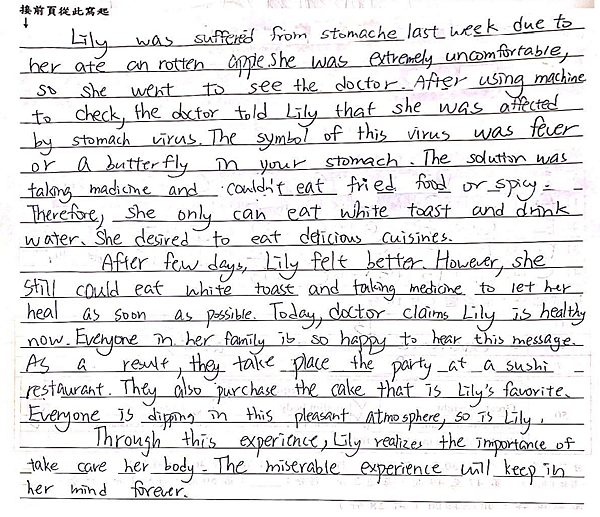 接前頁從此寫起
↓
Lily was suffered from stomache last week due to
her ate an rotten apple. She was extremely uncomfortable,
so she went to see the doctor. After using machine
to check, the doctor told Lily that she was affected
by stomach virus. The symbol of this virus was fever
or a butterfly in your stomach. The solution was
taking madicine and couldn't eat fried food or spicy.
Therefore, she only can eat white toast and drink
water. She desired to eat delicious cuisines.
After few days, Lily felt better. However, she
still could eat white toast and taking medicine to let her
heal as soon as possible. Today, doctor claims Lily is healthy
now. Everyone in her family is so happy to hear this message.
As a result, they take place the party at a sushi
restaurant. They also purchase the cake that is Lily's favorite.
Everyone is dipping in this pleasant atmosphere, so is Lily.
Through this experience, Lily realizes the importance of
take care her body. The miserable experience will keep in
her mind forever.